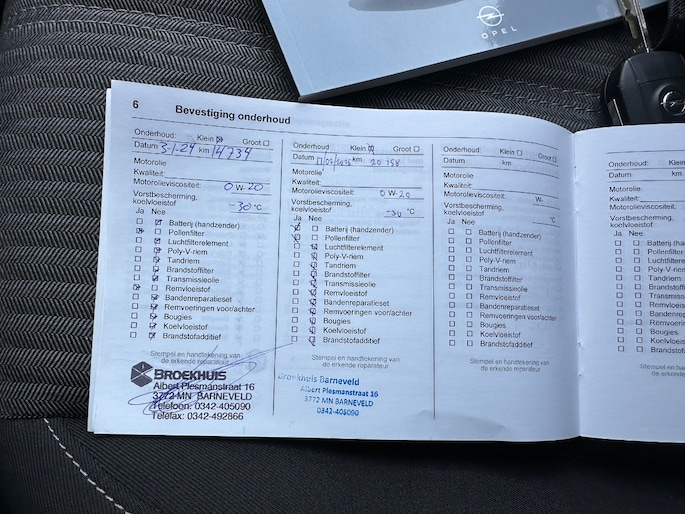 OPEL
6 Bevestiging onderhoud
Onderhoud: Klein ☒ Groot ☐
Datum 3-1-24 km 14734
Motorolie
Kwaliteit:
Motorolieviscositeit: 0 W-20
Vorstbescherming,
koelvloeistof -30 °C
Ja Nee
Batterij (handzender)
Pollenfilter
Luchtfilterelement
Poly-V-riem
Tandriem
Brandstoffilter
Transmissieolie
Remvloeistof
Bandenreparatieset
Remvoeringen voor/achter
Bougies
Koelvloeistof
Brandstofadditief
Stempel en handtekening van
de erkende reparateur
BROEKHUIS
Albert Plesmanstraat 16
3772 MN BARNEVELD
Telefoon: 0342-405090
Telefax: 0342-492866
Onderhoud: Klein ☒ Groot ☐
Datum km 20 158
Motorolie
Kwaliteit:
Motorolieviscositeit: 0 W-20
Vorstbescherming,
koelvloeistof -30 °C
Ja Nee
Batterij (handzender)
Pollenfilter
Luchtfilterelement
Poly-V-riem
Tandriem
Brandstoffilter
Transmissieolie
Remvloeistof
Bandenreparatieset
Remvoeringen voor/achter
Bougies
Koelvloeistof
Brandstofadditief
Stempel en handtekening van
de erkende reparateur
Broekhuis Barneveld
Albert Plesmanstraat 16
3772 MN BARNEVELD
0342-405090
Onderhoud: Klein ☐ Groot ☐
Datum km
Motorolie
Kwaliteit:
Motorolieviscositeit: W-
Vorstbescherming,
koelvloeistof °C
Ja Nee
Batterij (handzender)
Pollenfilter
Luchtfilterelement
Poly-V-riem
Tandriem
Brandstoffilter
Transmissieolie
Remvloeistof
Bandenreparatieset
Remvoeringen voor/achter
Bougies
Koelvloeistof
Brandstofadditief
Stempel en handtekening van
de erkende reparateur
Onderhoud: Klein
Datum km
Motorolie
Kwaliteit:
Motorolieviscositeit:
Vorstbescherming,
koelvloeistof
Ja Nee
Batterij (hand
Pollenfilter
Luchtfilterele
Poly-V-riem
Tandriem
Brandstoffilt
Transmissi
Remvloeist
Bandenrep
Remvoerin
Bougies
Koelvloeis
Brandstof
Stempel en han
de erkende